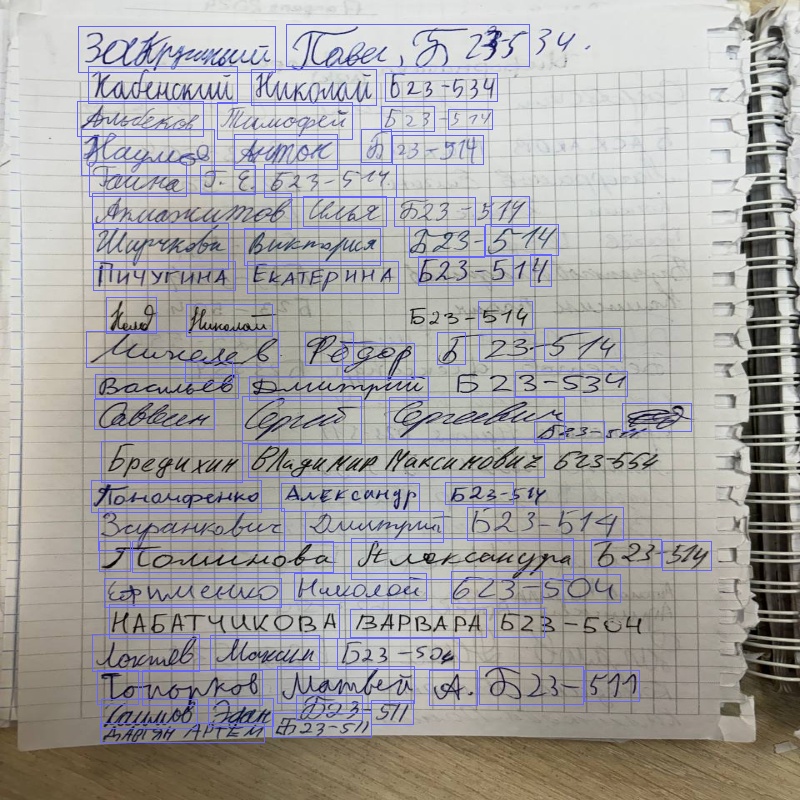 Павел, Б23-534.
Кабенский Николай Б23-534
Альбеков Тимофей Б23-514
Наумов Антон Б23-514
Ганна Г. Е. Б23-514
Илья Б23-514
Ширчкова Виктория Б23-514
ПИЧУГИНА ЕКАТЕРИНА Б23-514
Николай Б23-514
Фёдор Б23-514
Васильев Дмитрий Б23-534
Саввин Сергей Сергеевич
Б23-511
Бредихин Владимир Максимович Б23-554
Пономаренко Александр Б23-514
Заранкович Дмитрий Б23-514
Александра Б23-514
Ефименко Николай Б23-504
НАБАТЧИКОВА ВАРВАРА Б23-504
Локтев Максим Б23-504
Топорков Матвей А. Б23-511
Б23-511
АРТЁМ Б23-511